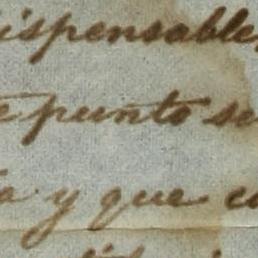 ispensable,
e punto se
a y que